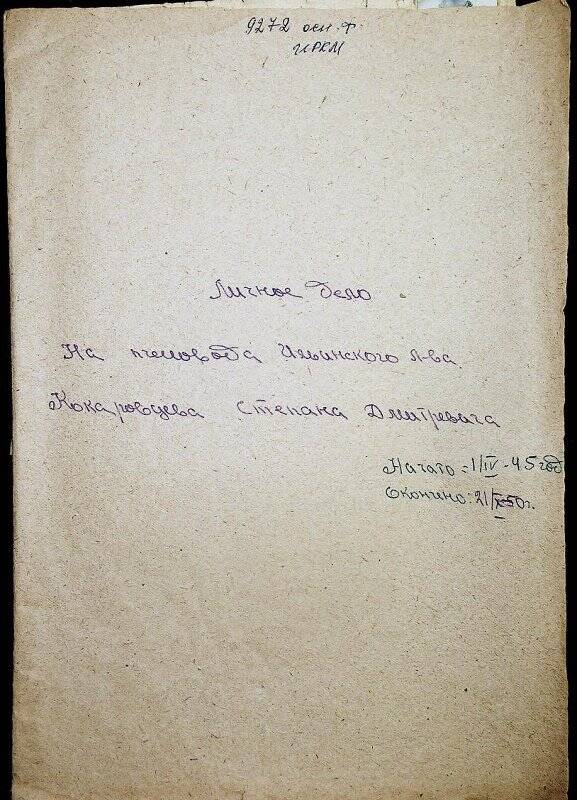 9272 осн. ф.
ИРКМ
Личное дело
На пчеловода Ильинского л-ва.
Кокаровцева Степана Дмитревича
Начато - 1/IV - 45 год
Окончино: 21/X 50г.